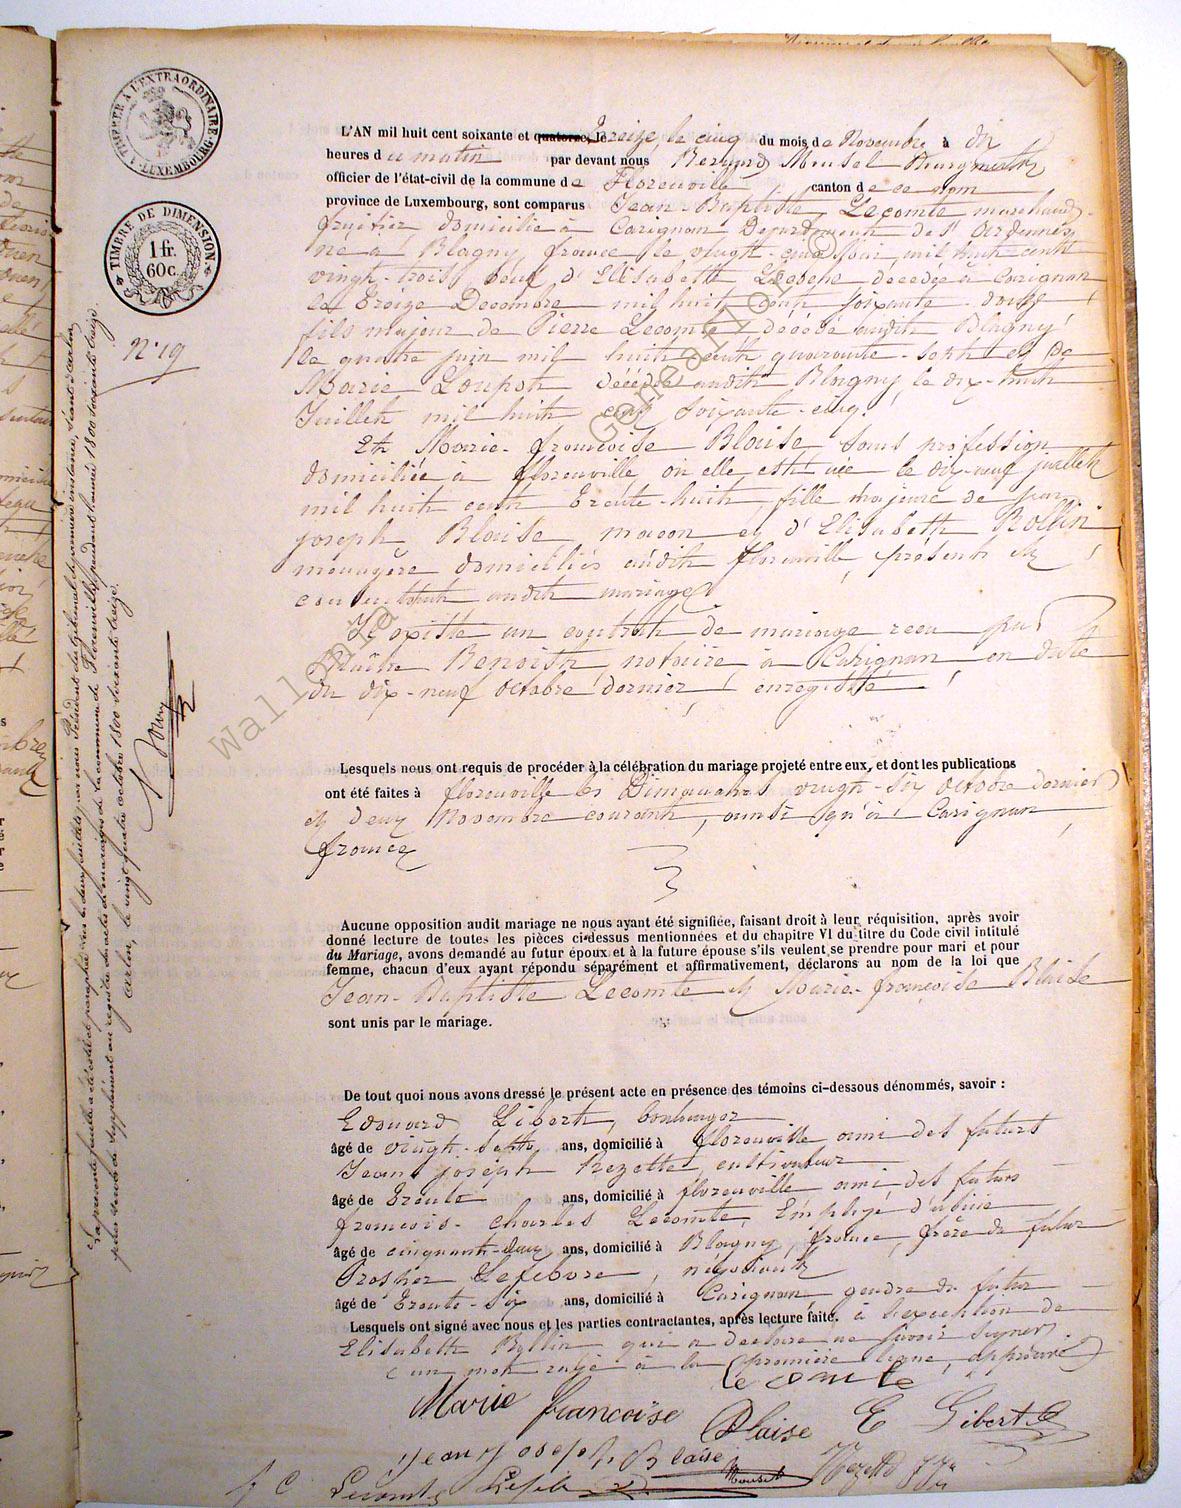 TIMBRER A L'EXTRAORDINAIRE
LUXEMBOURG
TIMBRE DE DIMENSION
1 fr.
60c.
N° 19
L'AN mil huit cent soixante et quatorze, le treize, le cinq du mois de Novembre à dix
heures du matin par devant nous Mousel Bourgmestre
officier de l'état-civil de la commune de Florenville, canton de ce nom
province de Luxembourg, sont comparus Jean-Baptiste Lecomte marchand
fruitier, domicilié à Carignan Département des Ardennes,
né à Blagny, france le vingt-cinq mil huit cent
vingt-trois, veuf d'Elisabeth décédée à Carignan
le treize Décembre mil huit cent soixante-douze,
fils majeur de Pierre Lecomte décédé audit Blagny
le quatre juin mil huit cent quarante-sept et de
Marie Loupot décédée audit Blagny, le dix-huit
Juillet mil huit cent soixante-cinq.
Et Marie-françoise Blaise, sans profession
domiciliée à florenville où elle est née le dix-neuf juillet
mil huit cent trente-huit, fille majeure de
joseph Blaise, maçon et d'Elisabeth Rollin
ménagère domiciliés audit florenville, présents et
consentant audit mariage
Il existe un contrat de mariage reçu par
Maître Benoith, notaire à Carignan, en date
du dix-neuf octobre dernier, enregistré
Lesquels nous ont requis de procéder à la célébration du mariage projeté entre eux, et dont les publications
ont été faites à florenville les Dimanches vingt-six octobre dernier
et deux Novembre courant, ainsi qu'à Carignan
france
Aucune opposition audit mariage ne nous ayant été signifiée, faisant droit à leur réquisition, après avoir
donné lecture de toutes les pièces ci-dessus mentionnées et du chapitre VI du titre du Code civil intitulé
du Mariage, avons demandé au futur époux et à la future épouse s'ils veulent se prendre pour mari et pour
femme, chacun d'eux ayant répondu séparément et affirmativement, déclarons au nom de la loi que
Jean-Baptiste Lecomte et Marie-françoise Blaise
sont unis par le mariage.
De tout quoi nous avons dressé le présent acte en présence des témoins ci-dessous dénommés, savoir :
Edouard Gibert, boulanger
âgé de vingt-sept ans, domicilié à florenville ami des futurs
Jean joseph Hezette, cultivateur
âgé de trente ans, domicilié à florenville ami des futurs
françois-Charles Lecomte, Employé d'usine
âgé de cinquante-deux ans, domicilié à Blagny, france, frère du futur
Prosper Lefebvre, négociant
âgé de trente-six ans, domicilié à Carignan, gendre du futur
Lesquels ont signé avec nous et les parties contractantes, après lecture faite. à l'exception de
Elisabeth Rollin qui a déclaré ne savoir signer,
un mot rayé à la première ligne, approuvé
Lecomte
Marie françoise Blaise E Gibert
Jean Joseph Blaise Mousel Hezette JJ
f C Lecomte Lefeb
La présente feuille a été cotée et paraphée nous Président du tribunal de première instance, séant à Arlon,
pour servir de supplément au registre des actes de mariage de la commune de Florenville, pendant l'année 1800 soixante treize.
Arlon, le vingt quatre octobre 1800 soixante treize.
Wallonia Geneanet ©